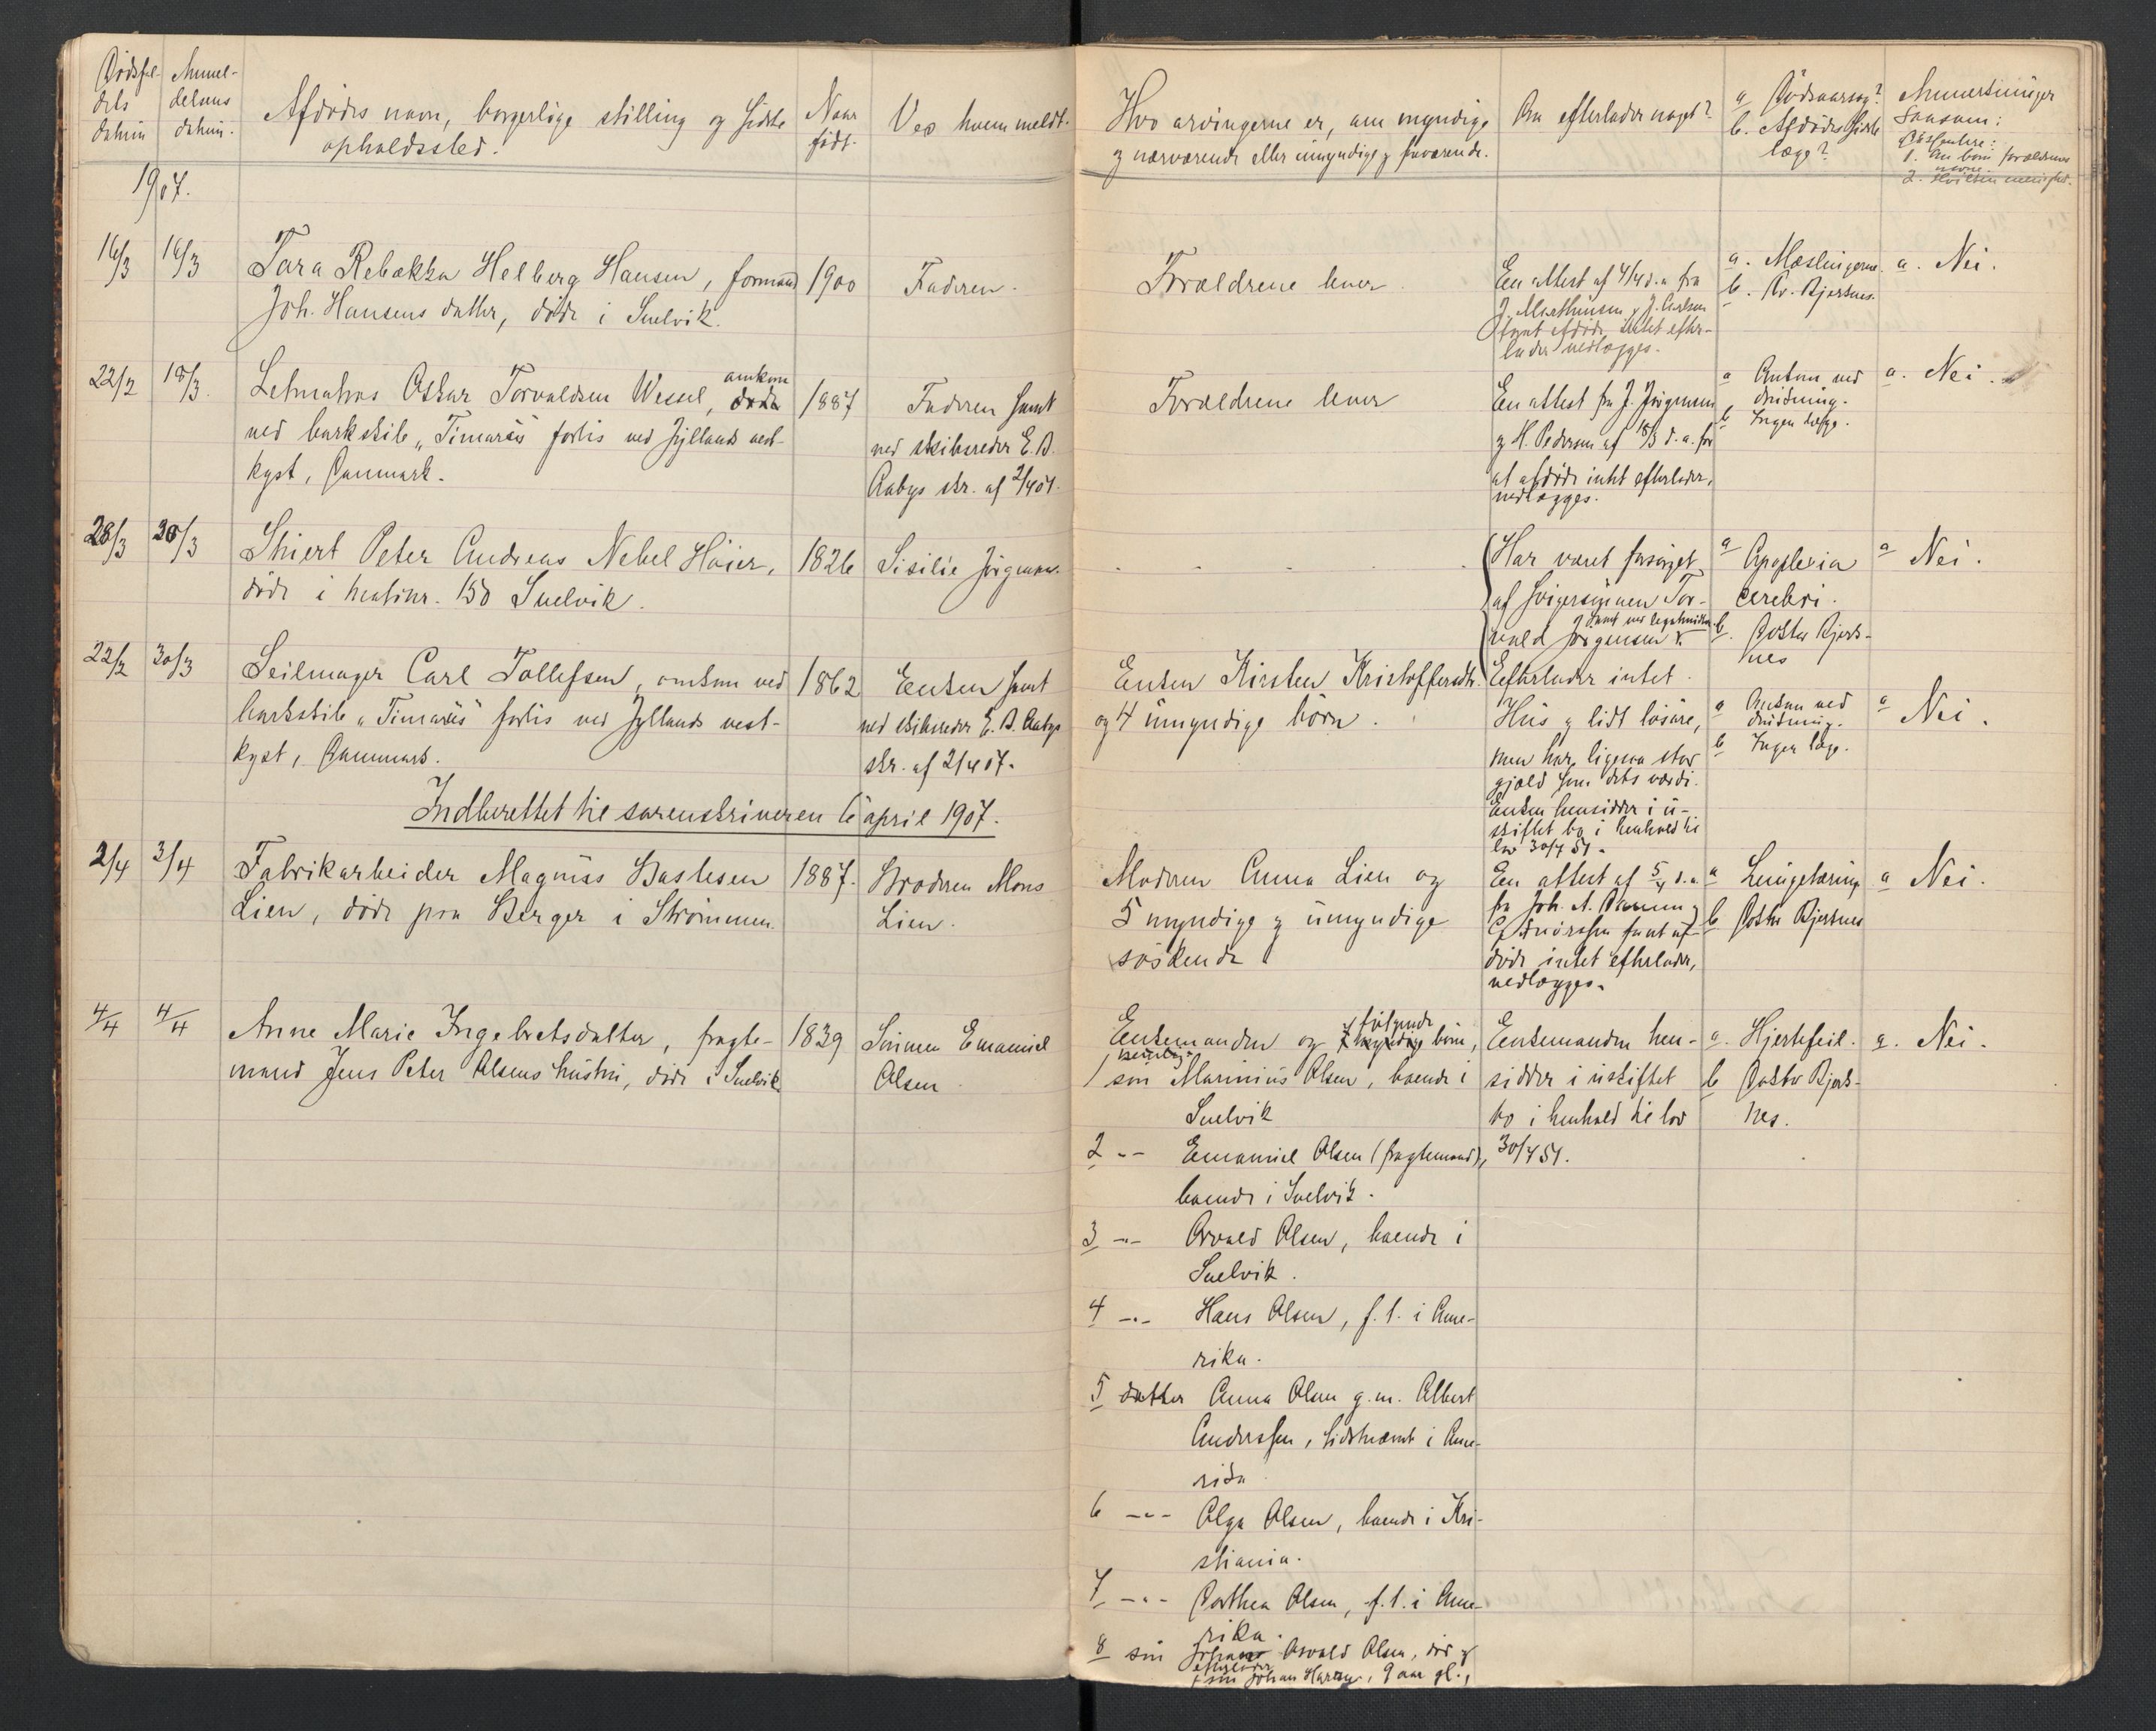 Dødsfal-
dets
datum
Anmel-
delsens
datum.
Afdødes navn, borgerlige stilling og sidste
opholdssted.
Naar
født.
Ved hvem meldt.
Hvo arvingerne er, om myndige
og nærværende eller umyndige og fraværende.
Om efterlader noget?
a Dødsaarsag?
b. Afdødes sidste
læge?
Anmerkninger
saasom:
Dissentere:
1. Om barn forældrenes
navne.
2. Hvilken menighed.
1907.
16/3 16/3 Tora Rebekka Helberg Hansen, formand 1900 Faderen.
Joh. Hansens datter, døde i Svelvik.
Forældrene lever
En attest af 4/4 d.a. fra
J. Marthinsen og J. Carlsen
samt afdøde intet efter-
lader nedlægges.
a. Mæslingerne.
b. Dr. Bjerknes.
a. Nei.
22/2 18/3. Letmatros Oskar Torvaldsen Wessel, omkom døde 1887
ved barkskib „Timaris" forlis ved Jyllands vest-
kyst, Danmark.
Faderen samt
ved skibsreder E. B.
Aabys skr. af 2/4 07.
Forældrene lever
En attest fra J. Jørgensen
og H. Pedersen af 18/3 d.a. for
at afdøde intet efterlader,
nedlægges.
a Omkom ved
drukning.
b Ingen læge.
a. Nei.
28/3 30/3 Skiert Peter Andreas Nebel Høier, 1826 Sisilie Jørgensen.
døde i matrnr. 150 Svelvik.
Har været forsørget
af svigersønnen Tor-
vald Jørgensen
samt ved legatmidler.
Efterlader intet.
a Apoplexia
cerebri.
b. Doktor Bjerk-
nes
a Nei.
22/2 30/3 Seilmager Carl Tollefsen, omkom ved 1862
barkskib „Timaris" forlis ved Jyllands vest-
kyst, Danmark.
Enken samt
ved skibsreder E. B. Aabys
skr. af 2/4 07.
Enken Kirsten Kristoffersdtr.
og 4 umyndige børn.
Hus og lidt løsøre,
men har ligesaa stor
gjæld som dets værdi.
Enken hensidder i u-
skiftet bo i henhold til
lov 30/7 51.
a Omkom ved
drukning.
b Ingen læge.
a Nei.
Indberettet til sorenskriveren 6 april 1907.
2/4 3/4 Fabrikarbeider Magnus Baslesen 1887. Broderen Mons
Lien, døde paa Berger i Strømmen. Lien.
Moderen Anna Lien og
5 myndige og umyndige
søskende
En attest af 5/4 d.a.
fra Joh. A. og
samt af-
døde intet efterlader,
nedlægges.
a Lungetæring
b Doktor Bjerknes
a Nei.
4/4 4/4 Anne Marie Ingebretsdatter, fragte- 1839 Sønnen Emanuel
mand Jens Peter Olsens hustru, døde i Svelvik Olsen
Enkemanden og følgende børn,
1 søn Marinius Olsen, boende i
Svelvik
2 -"- Emanuel Olsen (fragtemand),
boende i Svelvik.
3 -"- Orvald Olsen, boende i
Svelvik.
4 -"- Hans Olsen, f.t. i Ame-
rika.
5 datter Anna Olsen g.m. Albert
Anderssen, sidstnævnt i Ame-
rika
6 -"- Olga Olsen, boende i Kri-
stiania.
7 -"- Dorthea Olsen, f.t. i Ame-
rika.
8 søn Johan Osvald Olsen, død og
efterlader
1 søn Johan , 9 aar gl.,
Enkemanden hen-
sidder i uskiftet
bo i henhold til lov
30/7 51.
a. Hjertefeil.
b Doktor Bjerk-
nes.
a. Nei.